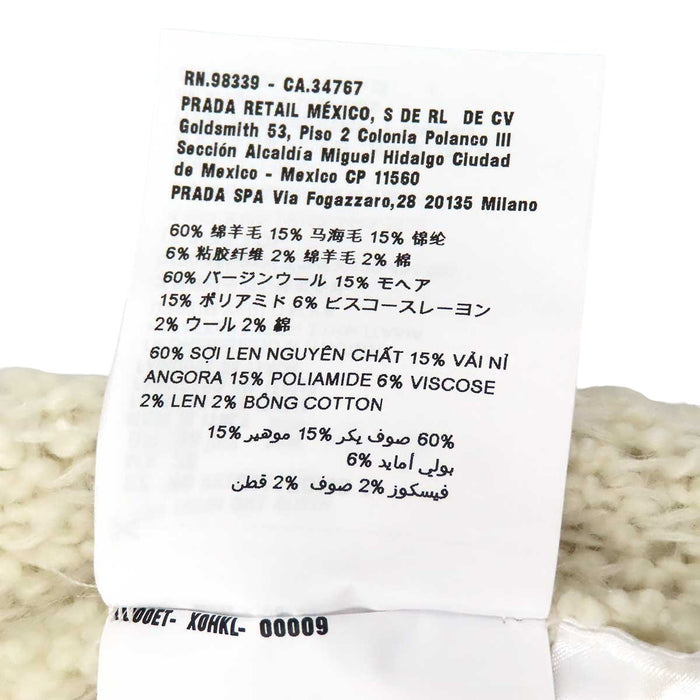 RN.98339 - CA.34767
PRADA RETAIL MÉXICO, S DE RL DE CV
Goldsmith 53, Piso 2 Colonia Polanco III
Sección Alcaldía Miguel Hidalgo Ciudad
de Mexico - Mexico CP 11560
PRADA SPA Via Fogazzaro,28 20135 Milano
60% 绵羊毛 15% 马海毛 15% 锦纶
6% 粘胶纤维 2% 绵羊毛 2% 棉
60% バージンウール 15% モヘア
15% ポリアミド 6% ビスコースレーヨン
2% ウール 2% 綿
60% SỢI LEN NGUYÊN CHẤT 15% VẢI NỈ
ANGORA 15% POLIAMIDE 6% VISCOSE
2% LEN 2% BÔNG COTTON
60% صوف بكر 15% موهير 15%
بولي أمايد 6%
فيسكوز 2% صوف 2% قطن
XOHKL- 00009